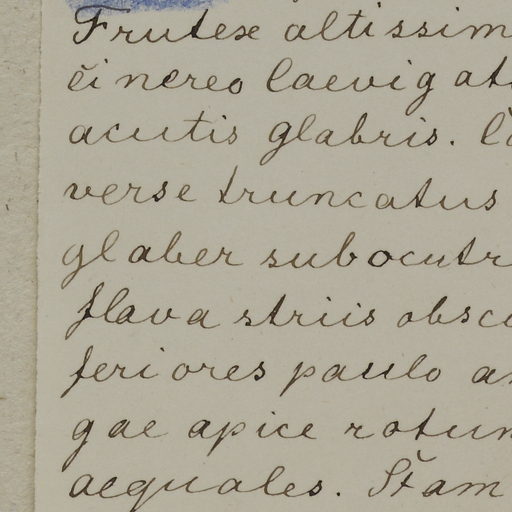 Frutex altissim
cinereo laevigat
acutis glabris. C
verse truncatus
glaber subocutr
flava striis obsc
feriores paulo a
gae apice rotun
aequales. Stam